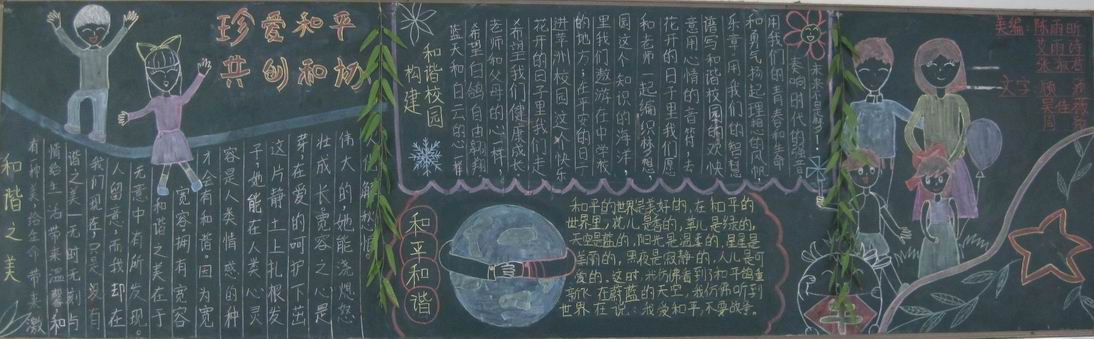 珍爱和平
共创和
和谐之美
有一种美给生命带来激
情给生活带来温馨,和
谐之美一无时无刻与
我们现存,只是没有
人留意,而我却在
无意中有所发现。
和谐之美在于
宽容,拥有宽容
才会有和谐。因为宽
容是人类情感的种
子,她能在人类心灵
这片静土上扎根发
芽,在爱的呵护下茁
壮成长宽容之心是
伟大的她能浇熄
构建
和谐校园
蓝天和白云的心一样
希望白鸽自由翱翔
老师和父母的心一样
希望我们健康成长
花开的日子里我们走
进莘洲校园这个快乐
的地方;在平安的日子
里我们遨游在中学
园这个知识的海洋;
和老师一起编织梦想,
花开的日子里我们愿
意用心情的音符,去
谱写和谐校园的欢快
乐章用我们的智慧
和勇气扬起理想的风帆
用我们的青春和生命
奏响时代的强音
未来
和平和谐
和平的世界是美好的,在和平的
世界里,花儿是香的,草儿是绿的,
天空是蓝的,阳光是温柔的,星星是
美丽的,黑夜是寂静的,人儿是可
爱的。这时,我仿佛看到了和平鸽重
新飞在蔚蓝的天空,我仿佛听到
世界在说:我爱和平,不要战争。
美编:陈雨昕
文字:顾
平